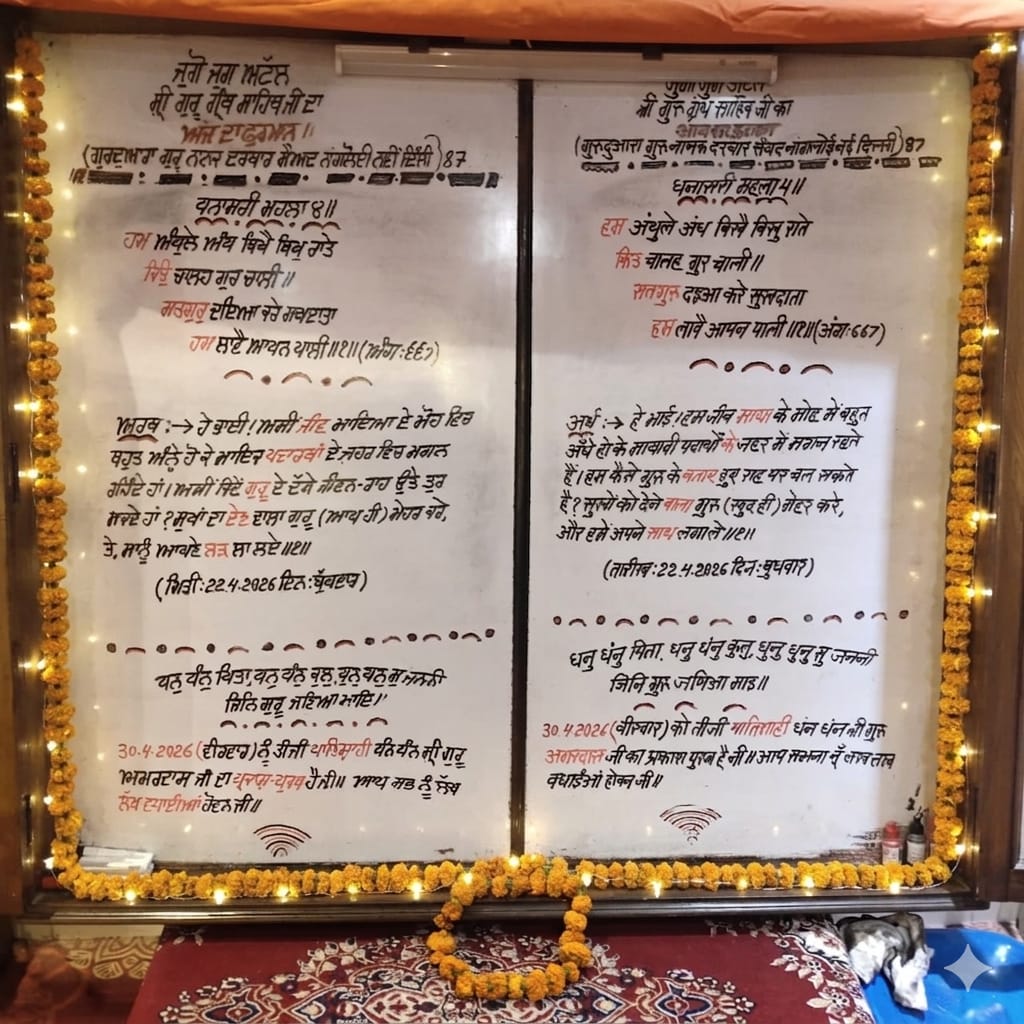 ਜੁਗੋ ਜੁਗ ਅਟੱਲ
ਸ੍ਰੀ ਗੁਰੂ ਗ੍ਰੰਥ ਸਾਹਿਬ ਜੀ ਦਾ
ਅੱਜ ਦਾ ਫੁਰਮਾਨ॥
(ਗੁਰਦੁਆਰਾ ਗੁਰੂ ਨਾਨਕ ਦਰਬਾਰ ਸੈਅਦ ਨੰਗਲੋਈ ਨਵੀਂ ਦਿੱਲੀ) 87
ਧਨਾਸਰੀ ਮਹਲਾ ੪॥
ਹਮ ਅੰਧੁਲੇ ਅੰਧ ਬਿਖੈ ਬਿਖੁ ਰਾਤੇ
ਕਿਉ ਚਾਲਹ ਗੁਰ ਚਾਲੀ॥
ਸਤਗੁਰੁ ਦਇਆ ਕਰੇ ਸੁਖਦਾਤਾ
ਹਮ ਲਾਵੈ ਆਪਨ ਪਾਲੀ॥੧॥(ਅੰਗ:੬੬੭)
ਅਰਥ :→ ਹੇ ਭਾਈ। ਅਸੀਂ ਜੀਵ ਮਾਇਆ ਦੇ ਮੋਹ ਵਿਚ
ਬਹੁਤ ਅੰਨ੍ਹੇ ਹੋ ਕੇ ਮਾਇਕ ਪਦਾਰਥਾਂ ਦੇ ਜ਼ਹਰ ਵਿਚ ਮਗਨ
ਰਹਿੰਦੇ ਹਾਂ। ਅਸੀਂ ਕਿਵੇਂ ਗੁਰੂ ਦੇ ਦੱਸੇ ਜੀਵਨ-ਰਾਹ ਉਤੇ ਤੁਰ
ਸਕਦੇ ਹਾਂ? ਸੁਖਾਂ ਦਾ ਦੇਣ ਵਾਲਾ ਗੁਰੂ (ਆਪ ਹੀ) ਮੇਹਰ ਕਰੇ,
ਤੇ, ਸਾਨੂੰ ਆਪਣੇ ਲੜ ਲਾ ਲਏ॥੧॥
(ਮਿਤੀ:22.4.2026 ਦਿਨ:ਬੁੱਧਵਾਰ)
ਧਨੁ ਧੰਨੁ ਪਿਤਾ, ਧਨੁ ਧੰਨੁ ਕੁਲੁ, ਧਨੁ ਧਨੁ ਸੁ ਜਨਨੀ
ਜਿਨਿ ਗੁਰੂ ਜਣਿਆ ਮਾਇ।
30.4.2026 (ਵੀਰਵਾਰ) ਨੂੰ ਤੀਜੀ ਪਾਤਿਸ਼ਾਹੀ ਧੰਨ ਧੰਨ ਸ੍ਰੀ ਗੁਰੂ
ਅਮਰਦਾਸ ਜੀ ਦਾ ਪ੍ਰਕਾਸ਼-ਪੁਰਬ ਹੈ ਜੀ॥ ਆਪ ਸਭ ਨੂੰ ਲੱਖ
ਲੱਖ ਵਧਾਈਆਂ ਹੋਵਨ ਜੀ॥
जुगो जुग अटल
श्री गुरु ग्रंथ साहिब जी का
(गुरुदुआरा गुरु नानक दरबार सैयद नांगलोई नई दिल्ली) 87
धनासरी महला ५॥
हम अंधुले अंध बिखै बिखु राते
किउ चालह गुर चाली॥
सतगुरु दइआ करे सुखदाता
हम लावै आपन पाली॥१॥(अंग:667)
अर्थ :→ हे भाई। हम जीव माया के मोह में बहुत
अंधे हो के मायावी पदार्थों के जहर में मगन रहते
हैं। हम कैसे गुरु के बताए हुए राह पर चल सकते
है? सुखों को देने वाला गुरु (खुद ही) मेहर करे,
और हमें अपने साथ लगा ले॥१॥
(तारीख:22.4.2026 दिन:बुधवार)
धनु धंनु पिता, धनु धंनु कुलु, धनु धनु सु जननी
जिनि गुरु जणिआ माइ॥
30.4.2026 (वीरवार) को तीजी पातिशाही धंन धंन श्री गुरु
अमरदास जी का प्रकाश पुरब है जी॥ आप सभना नूँ लख लख
वधाईआं होवन जी॥